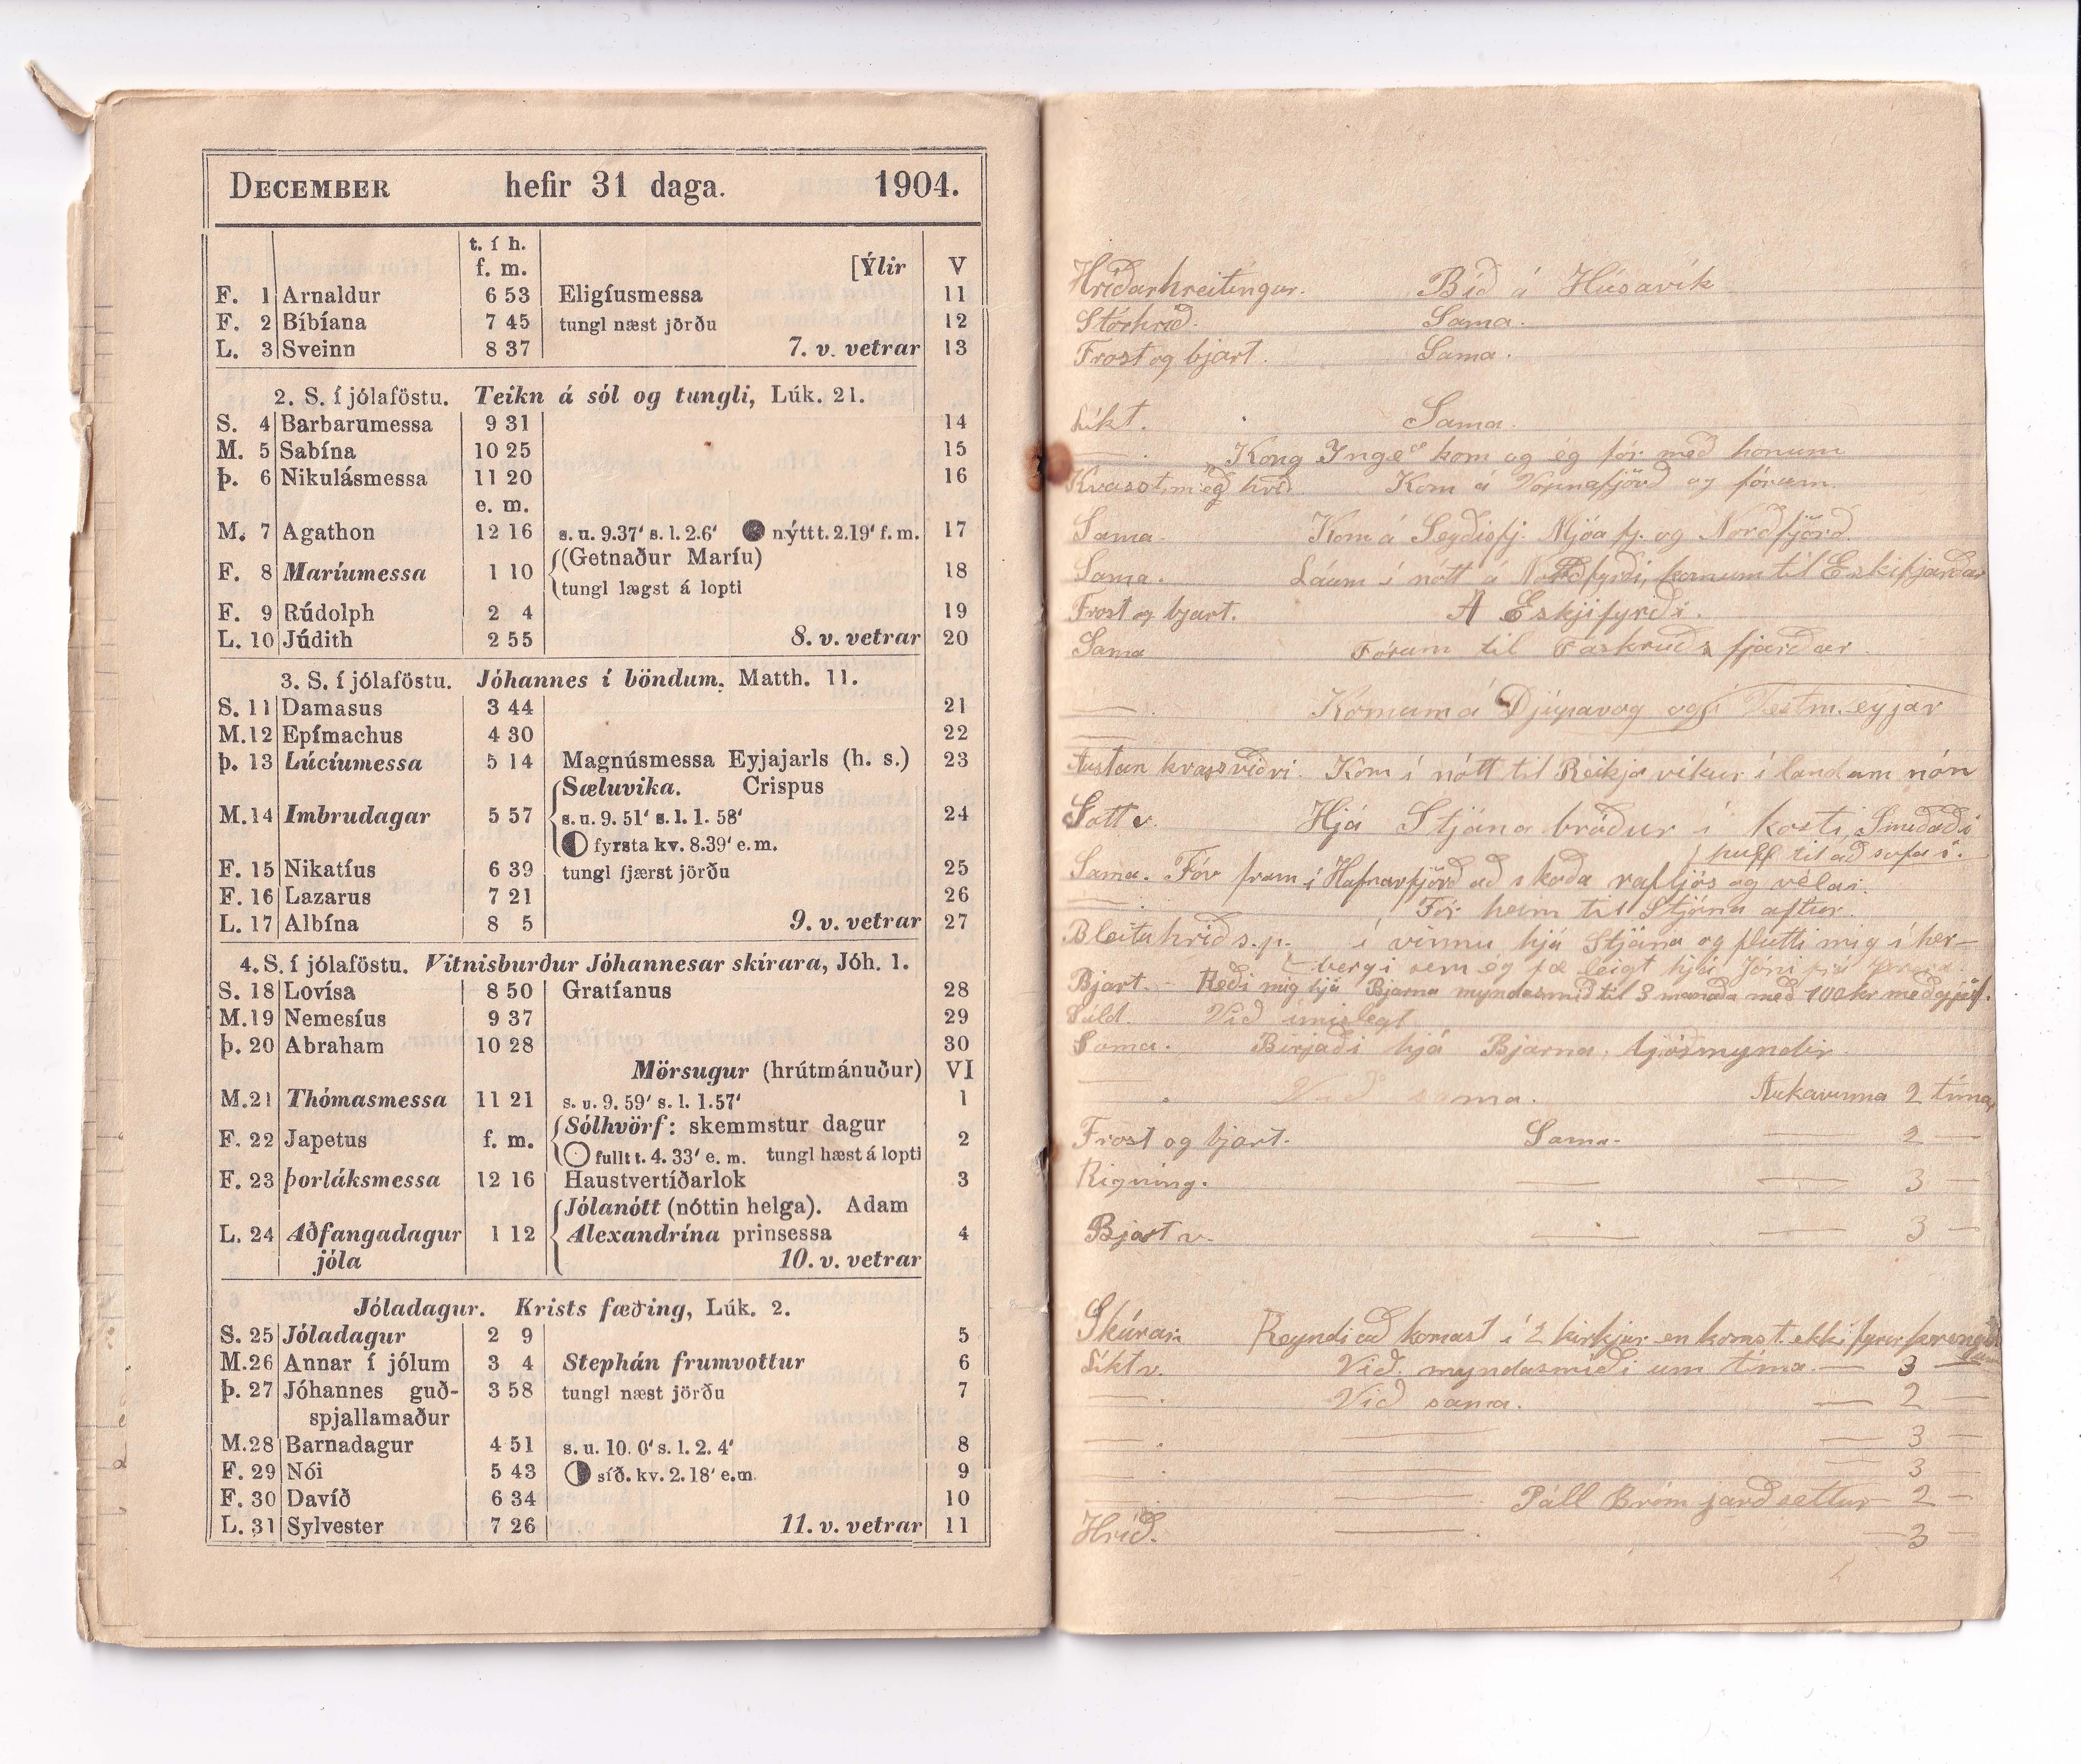 DECEMBER hefir 31 daga. 1904.
t. í h.
f. m. [Ýlir V
F. 1 Arnaldur 6 53 Eligíusmessa 11
F. 2 Bíbíana 7 45 tungl næst jörðu 12
L. 3 Sveinn 8 37 7. v. vetrar 13
2. S. í jólaföstu. Teikn á sól og tungli, Lúk. 21.
S. 4 Barbarumessa 9 31 14
M. 5 Sabína 10 25 15
Þ. 6 Nikulásmessa 11 20 16
e. m.
M. 7 Agathon 12 16 s. u. 9.37' s. l. 2.6' nýtt t. 2.19' f. m. 17
F. 8 Maríumessa 1 10 (Getnaður Maríu) 18
tungl lægst á lopti
F. 9 Rúdolph 2 4 19
L. 10 Júdith 2 55 8. v. vetrar 20
3. S. í jólaföstu. Jóhannes í böndum. Matth. 11.
S. 11 Damasus 3 44 21
M. 12 Epímachus 4 30 22
Þ. 13 Lúcíumessa 5 14 Magnúsmessa Eyjajarls (h. s.) 23
Sæluvika. Crispus
M. 14 Imbrudagar 5 57 s. u. 9. 51' s. l. 1. 58' 24
fyrsta kv. 8.39' e. m.
F. 15 Nikatíus 6 39 tungl fjærst jörðu 25
F. 16 Lazarus 7 21 26
L. 17 Albína 8 5 9. v. vetrar 27
4. S. í jólaföstu. Vitnisburður Jóhannesar skírara, Jóh. 1.
S. 18 Lovísa 8 50 Gratíanus 28
M. 19 Nemesíus 9 37 29
Þ. 20 Abraham 10 28 30
Mörsugur (hrútmánuður) VI
M. 21 Thómasmessa 11 21 s. u. 9. 59' s. l. 1.57' 1
Sólhvörf: skemmstur dagur
F. 22 Japetus f. m. 2
fullt t. 4. 33' e. m. tungl hæst á lopti
F. 23 Þorláksmessa 12 16 Haustvertíðarlok 3
Jólanótt (nóttin helga). Adam
L. 24 Aðfangadagur 1 12 Alexandrína prinsessa 4
jóla 10. v. vetrar
Jóladagur. Krists fæðing, Lúk. 2.
S. 25 Jóladagur 2 9 5
M. 26 Annar í jólum 3 4 Stephán frumvottur 6
Þ. 27 Jóhannes guð- 3 58 tungl næst jörðu 7
spjallamaður
M. 28 Barnadagur 4 51 s. u. 10. 0' s. l. 2. 4' 8
F. 29 Nói 5 43 síð. kv. 2. 18' e. m. 9
F. 30 Davíð 6 34 10
L. 31 Sylvester 7 26 11. v. vetrar 11
Hríðarhreitingur. Bíð á Húsavík
Stórhríð. Sama.
Frost og bjart. Sama.
Líkt. Sama.
— . „Kong Inge“ kom og ég fór með honum
Kvasst með hríð. Kom á Vopnafjörð og fórum.
Sama. Kom á Seyðisfj. Mjóa fj. og Norðfjörð.
Sama. Láum í nótt á Norðfyrði, komum til Eskifjarðar
Frost og bjart. Á Eskjifyrði.
Sama Fórum til Fáskrúðs fjarðar.
— . Komum á Djúpavog og í Vestm. eyjar
Austan kvassviðri. Kom í nótt til Reikjavíkur í land um nón
Gott v. Hjá Stjána bróður í kosti. Smíðaði
puff til að sofa í.
Sama. Fór fram í Hafnarfjörð að skoða rafljós og vélar.
— . Fór heim til Stjána aftur.
Bleituhríð s.p. í vinnu hjá Stjána og flutti mig í her-
bergi sem ég fæ leigt hjá Jóni
Bjart. Réði mig hjá Bjarna myndasmið til 3 mánaða með 100 kr meðgjöf.
Við ímislegt
Sama. Birjaði hjá Bjarna, ljósmyndir.
— . Við sama. Aukavinna 2 tíma
Frost og bjart. Sama. — 2 —
Rigning. — — 3 —
Bjart v. — — 3 —
Skúrar. Reyndi að komast í 2 kirkjur en komst ekki fyrir
Líkt v. Við myndasmíði um tíma. — 3 —
— . Við sama. — 2 —
— . — — 3 —
— — 3 —
— Páll Bróm jarðsettur 2 —
Hríð. — — 3 —